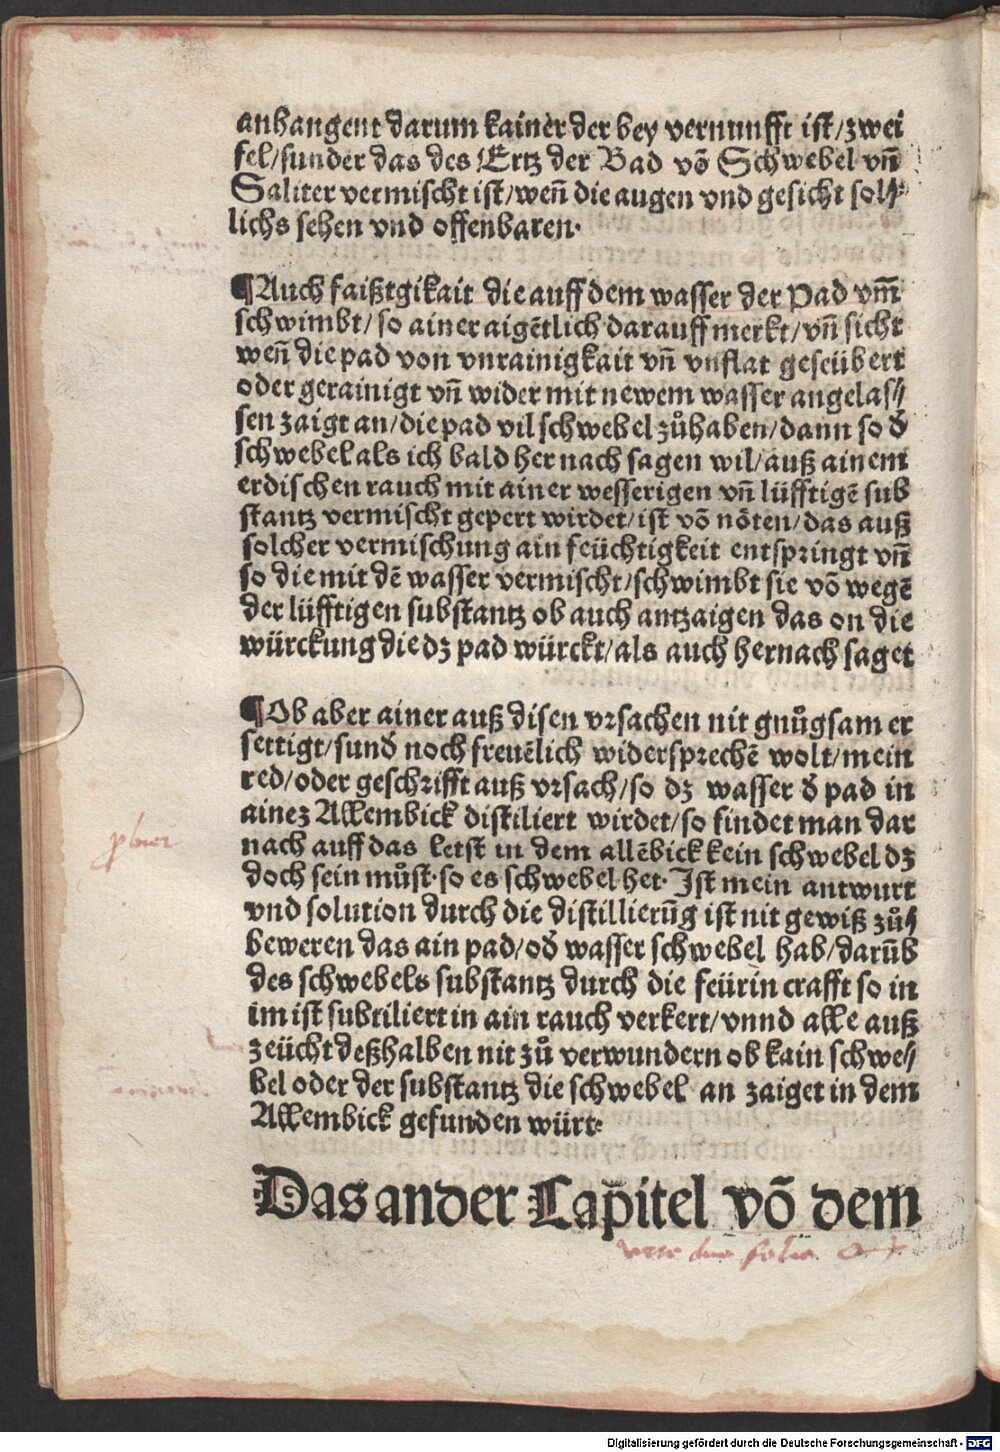 anhangent darum kainer der bey vernunfft ist/zwei
fel/sunder das des Ertz der Bad võ Schwebel vñ
Saliter vermischt ist/weñ die augen vnd gesicht soll⸗
lichs sehen vnd offenbaren.
¶Auch faißtgikait die auff dem wasser der Pad vm̃
schwimbt/so ainer aigẽtlich darauff merkt/vñ sicht
weñ die pad von vnrainigkait vñ vnflat geseübert
oder gerainigt vñ wider mit newem wasser angelas⸗
sen zaigt an/die pad vil schwebel zůhaben/dann so đ
schwebel als ich bald her nach sagen wil/auß ainem
erdischen rauch mit ainer wesserigen vñ lüfftigẽ sub
stantz vermischt gepert wirdet/ist võ nöten/das auß
solcher vermischung ain feüchtigkeit entspringt vñ
so die mit dẽ wasser vermischt/schwimbt sie võ wegẽ
der lüfftigen substantz ob auch antzaigen das on die
würckung die dz pad würckt/als auch hernach saget
¶Ob aber ainer auß disen vrsachen nit gnůgsam er
settigt/sunđ noch freuẽlich widersprechẽ wolt/mein
red/oder geschrifft auß vrsach/so dz wasser đ pad in
ainez Allembick distiliert wirdet/so findet man dar
nach auff das letst in dem allẽbick kein schwebel dz
doch sein můst.so es schwebel het. Ist mein antwurt
vnd solution durch die distillierũg ist nit gewiß zů⸗
beweren das ain pad/ođ wasser schwebel hab/darũb
des schwebels substantz durch die feürin crafft so in
im ist subtiliert in ain rauch verkert/vnnd alle auß
zeücht deßhalben nit zů verwundern ob kain schwe⸗
bel oder der substantz die schwebel an zaiget in dem
Allembick gefunden würt.
Das ander Capitel võ dem
folia
Digitalisierung gefördert durch die Deutsche Forschungsgemeinschaft - DFG